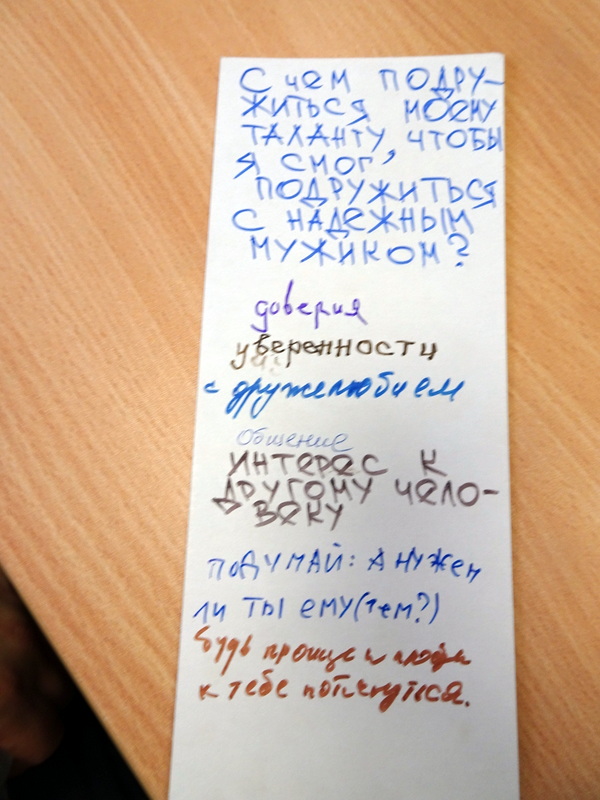 С чем ПОДРУ-
ЖИТЬСЯ МОЕМУ
ТАЛАНТУ, ЧТОБЫ
Я СМОГ,
ПОДРУЖИТЬСЯ
С НАДЕЖНЫМ
МУЖИКОМ?
доверия
уверенности
с дружелюбием
Общение
ИНТЕРЕС К
ДРУГОМУ ЧЕЛО-
ВЕКУ
ПОДУМАЙ: А НУЖЕН
ЛИ ТЫ ЕМУ (тем?)
Будь проще и люди
к тебе потянутся.